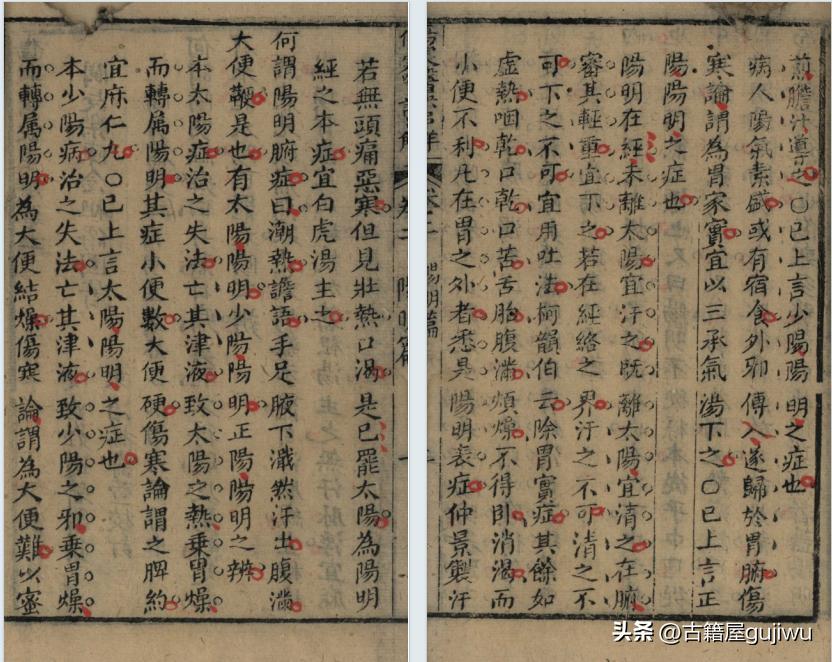 卷二 陽明篇 一
若無頭痛惡寒但見壯熱口渴是已罷太陽為陽明
經之本症宜白虎湯主之
何謂陽明腑症曰潮熱譫語手足腋下濈然汗出腹滿
大便鞕是也有太陽陽明少陽陽明正陽陽明之辨
本太陽症治之失法亡其津液致太陽之熱乘胃燥
而轉属陽明其症小便數大便硬傷寒論謂之脾約
宜麻仁丸〇已上言太陽陽明之症也
本少陽病治之失法亡其津液致少陽之邪乘胃燥
而轉属陽明為大便結燥傷寒論謂為大便難以蜜
煎膽汁導之〇已上言少陽陽明之症也
病人陽氣素盛或有宿食外邪傳入遂歸於胃腑傷
寒論謂為胃家實宜以三承氣湯下之〇已上言正
陽陽明之症也
陽明在經未離太陽宜汗之既離太陽宜清之在腑
審其輕重宜下之若在經絡之界汗之不可清之不
可下之不可宜用吐法柯韻伯云除胃實症其餘如
虛熱咽乾口乾口苦舌胎腹滿煩燥不得卧消渴而
小便不利凡在胃之外者悉是陽明表症仲景製汗
卷二 陽明篇 二
头条 @古籍屋gujiwu